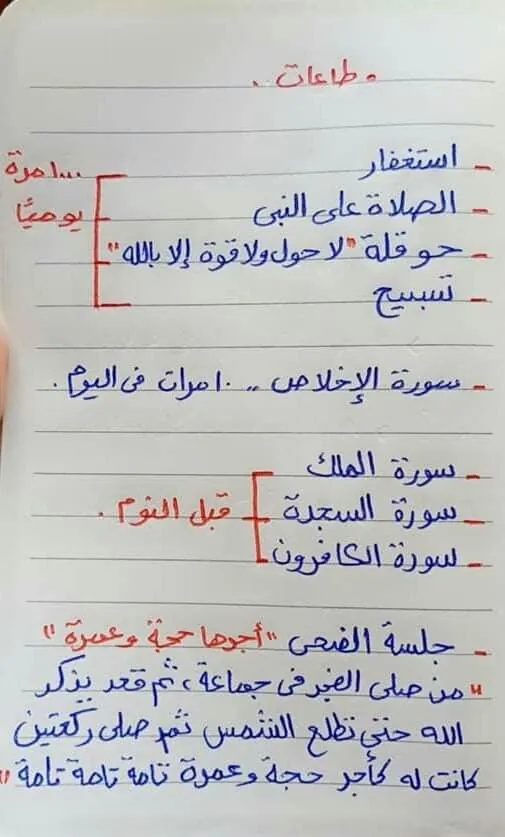 • طاعات .
- استغفار
- الصلاة على النبى
- حوقلة "لا حول ولا قوة إلا بالله"
- تسبيح
١٠٠٠مرة
يوميًا
- سورة الإخلاص ,, ١٠مرات فى اليوم .
- سورة الملك
- سورة السجدة
- سورة الكافرون
قبل النوم .
- جلسة الضحى "أجرها حجة وعمرة"
"من صلى الفجر فى جماعة، ثم قعد يذكر
الله حتى تطلع الشمس ثم صلى ركعتين
كانت له كأجر حجة وعمرة تامة تامة تامة"